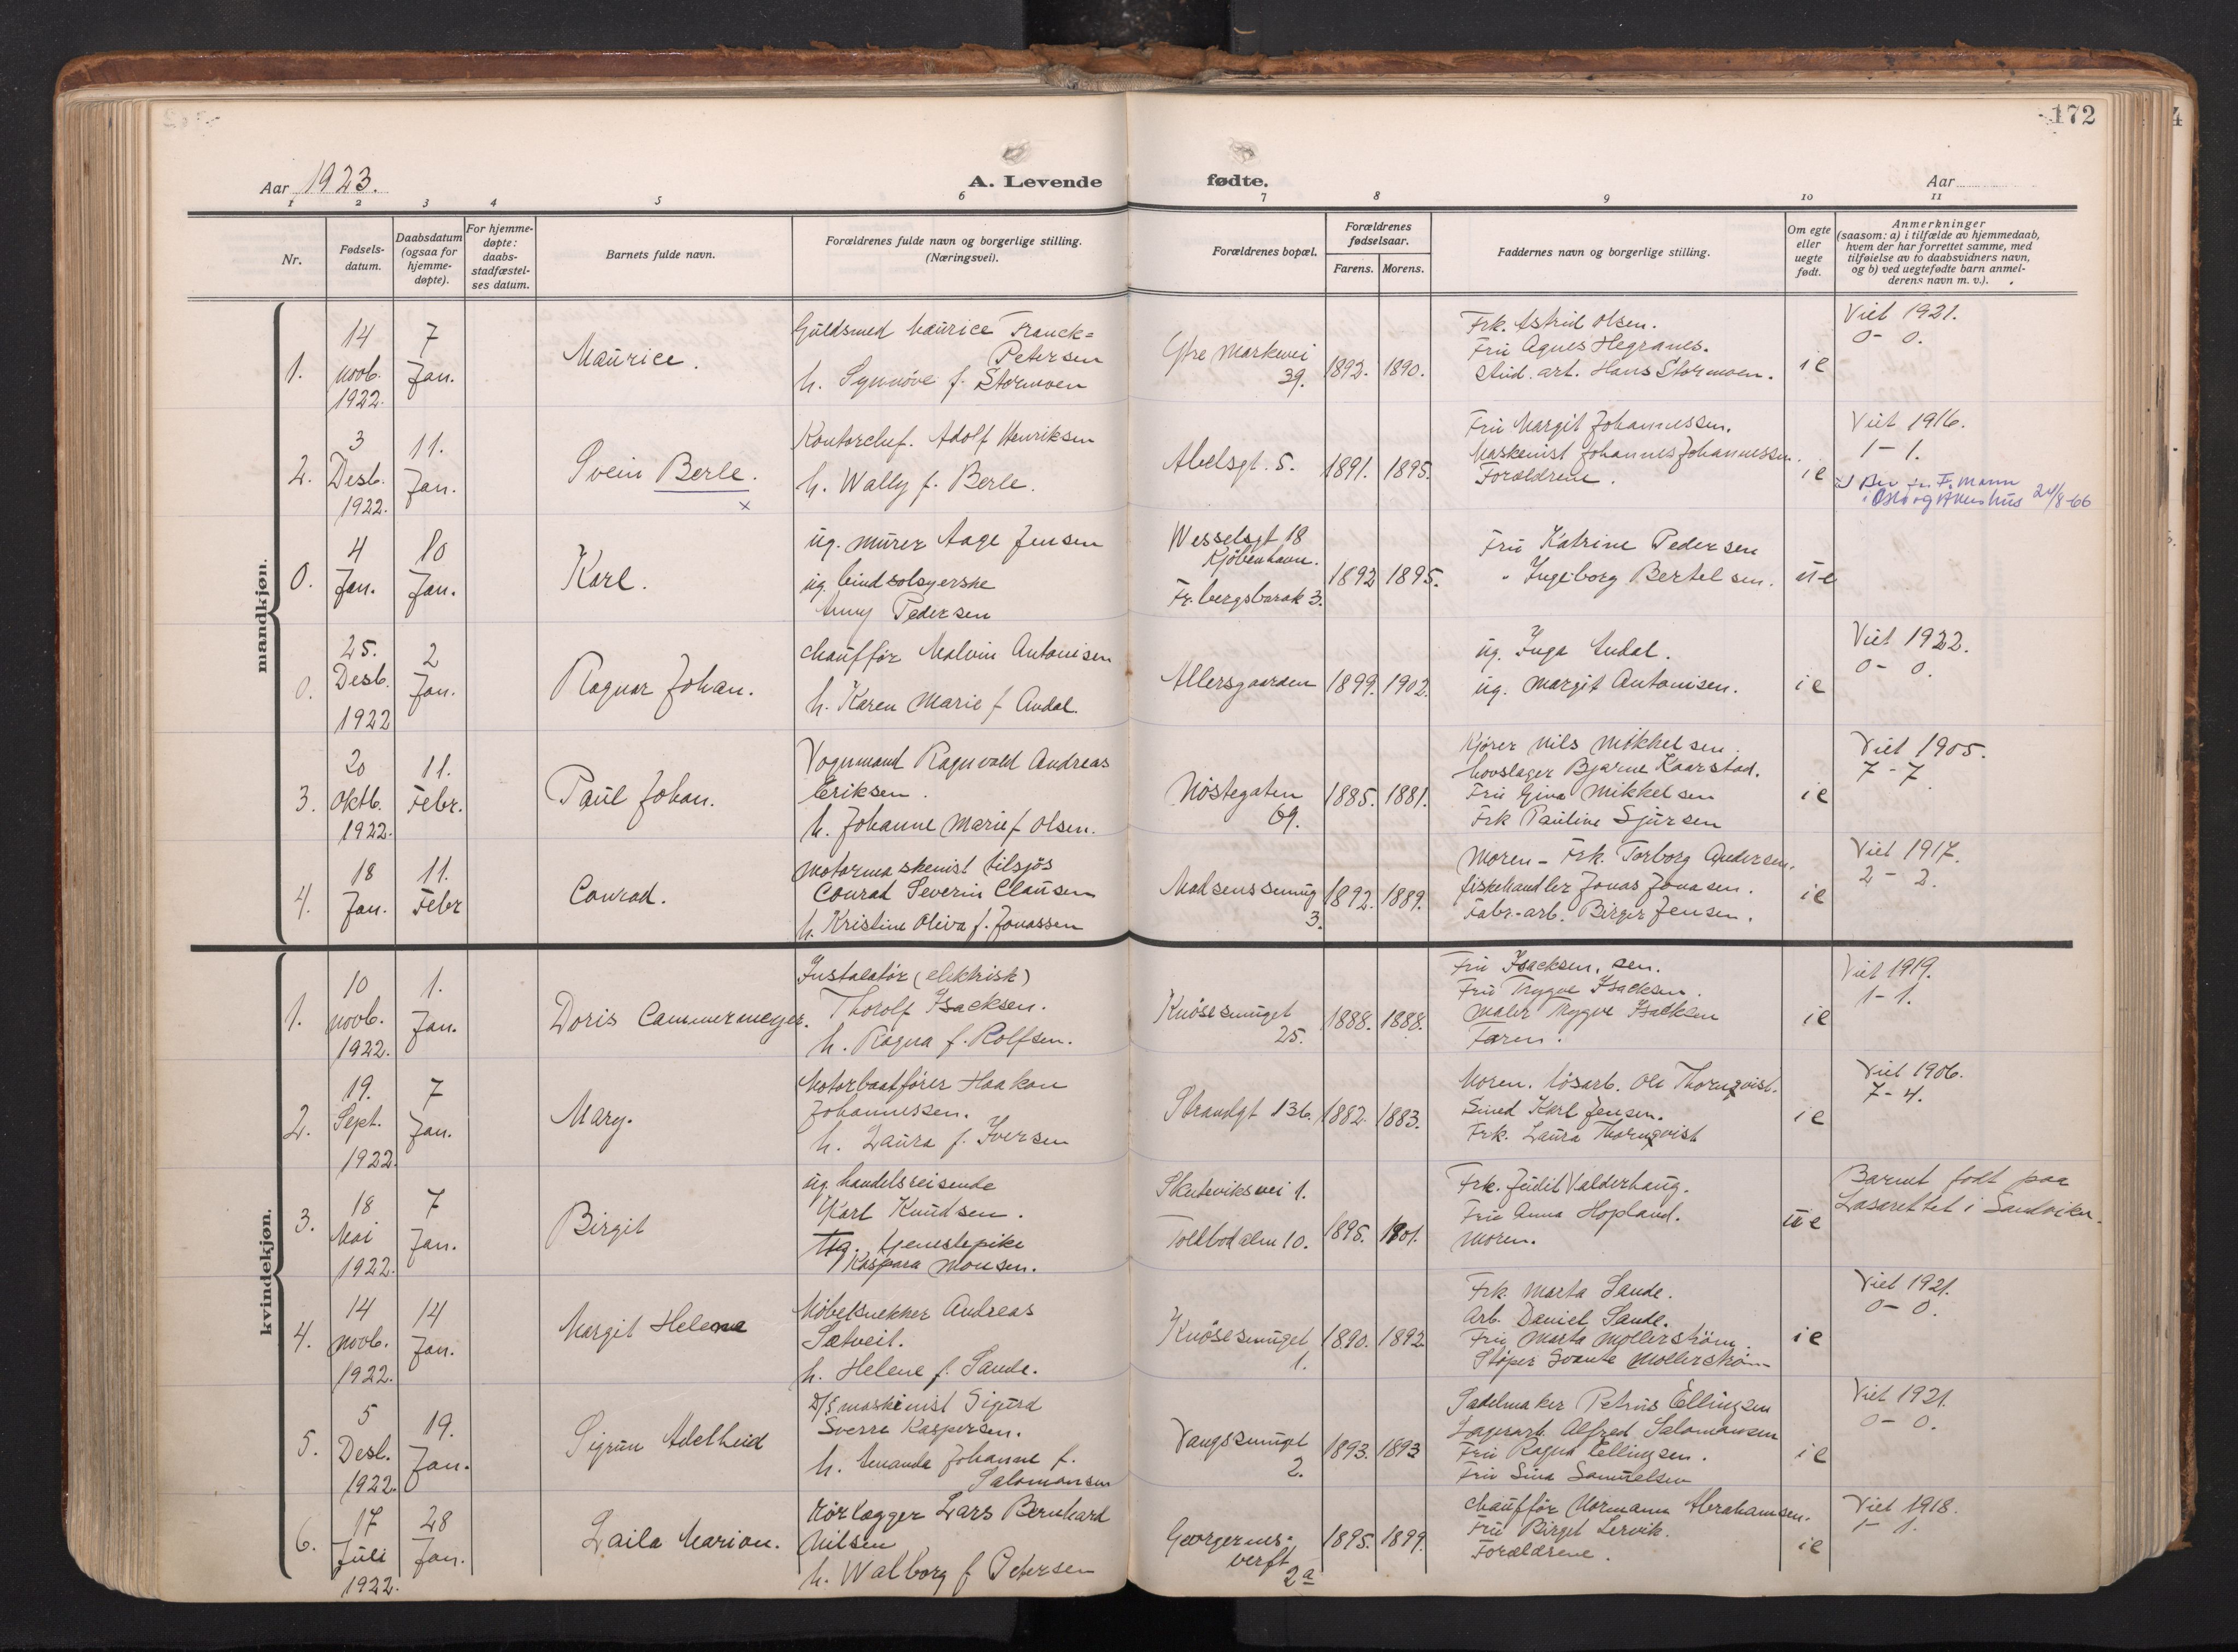 172
Aar 1923.
A. Levende fødte.
Aar
1 2 3 4 5 6 7 8 9 10 11
Nr.
Fødsels-
datum.
Daabsdatum
(ogsaa for
hjemme-
døpte).
For hjemme-
døpte:
daabs-
stadfæstel-
ses datum.
Barnets fulde navn.
Forældrenes fulde navn og borgerlige stilling.
(Næringsvei).
Forældrenes bopæl.
Forældrenes
fødselsaar.
Farens. Morens.
Faddernes navn og borgerlige stilling.
Om egte
eller
uegte
født.
Anmerkninger
(saasom: a) i tilfælde av hjemmedaab,
hvem der har forrettet samme, med
tilføielse av to daabsvidners navn,
og b) ved uegtefødte barn anmel-
derens navn m. v.).
mandkjøn.
1.
14
novb.
1922.
7
Jan.
Maurice.
Guldsmed Maurice Franck=
Petersen
h. Synnøve f. Stormoen
Ytre Markevei
39.
1892. 1890.
Frk. Astrid Olsen.
Fru Agnes Hegranes.
Stud. art. Hans Stormoen.
ie
Viet 1921.
0- 0.
2.
3
Desb.
1922.
11.
Jan.
Svein Berle.
x
Kontorchef. Adolf Henriksen
h. Wally f. Berle.
Abelsgt. 5.
1891. 1895.
Fru Margit Johannessen.
Maskenist Johannes Johannessen.
Forældrene.
ie
Viet 1916.
1- 1.
F. mann
i Oslo og Akershus 24/8-66
0.
4
Jan.
10
Jan.
Karl.
ug. murer Aage Jensen
ug. lindsolsyerske
Anny Pedersen
Wesselsgt 18
Kjöbenhavn.
Fr. bergsbarak 3.
1892 1895.
Fru Katrine Pedersen
" Ingeborg Bertelsen.
ue
0.
25.
Desb.
1922
2
Jan.
Ragnar Johan.
chauffør Malvin Antonisen
h. Karen Marie f Andal.
Allersgaarden
1899. 1902.
ug. Inga Andal.
ug. Margit Antonisen.
ie
Viet 1922.
0- 0.
3.
20
Oktb.
1922.
11.
Febr.
Paul Johan.
Vognmand Ragnvald Andreas
Eriksen.
h. Johanne Marie f Olsen.
Nøstegaten
69.
1885. 1881.
Kjører Nils Mikkelsen.
hovslager Bjarne Kaarstad.
Fru Gina Mikkelsen
Frk Pauline Sjursen
ie
Viet 1905.
7-7
4.
18
Jan.
11.
Febr
Conrad.
Motormaskenist tilsjøs
Conrad Severin Clausen
h. Kristine Oliva f. Jonassen
Madsenssmug
3.
1892. 1889.
Moren - Frk. Torborg Andersen.
fiskehandler Jonas Jonasen.
Fabr.-arb. Birger Jensen.
ie
Viet 1917.
2- 2.
kvindekjøn.
1.
10
novb.
1922.
1.
Jan.
Doris Cammermeyer.
Instalatør (elektrisk)
Thorolf Isacksen.
h. Ragna f. Rolfsen.
Knøsesmuget
25.
1888. 1888.
Fru Isacksen, sen.
Fru Trygve Isacksen.
Maler Trygve Isacksen
Faren.
ie
Viet 1919.
1-1.
2.
19.
Sept.
1922.
7
Jan.
Mary.
Motorbaatfører Haakon
Johannessen.
h. Laura f. Iversen
Strandgt 136.
1882. 1883.
Moren. løsarb. Ole Thornqvist.
Smed Karl Jensen.
Frk. Laura Thornqvist
ie
Viet 1906.
7-4.
3.
18
Mai
1922.
7
Jan.
Birgit
ug. handelsreisende
Karl Knudsen.
Ug. tjenestepike
Kaspara Monsen.
Skuteviksvei 1.
Toldbodalm 10.
1895. 1901.
Frk. Judit Valderhaug.
Fru Anna Hopland.
Moren.
ue
Barnet født paa
Lasarettet i Sandviken.
4.
14
novb.
1922.
14
Jan.
Margit Helene
Møbelsnekker Andreas
Sætveit.
h. Helene f. Sande.
Knøsesmuget
1.
1890. 1892
Frk. Marta Sande.
Arb. Daniel Sande.
Fru Marta Møllerstrøm.
Støper Svante Møllerstrøm
ie
Viet 1921.
0- 0.
5.
5
Desb.
1922.
19.
Jan.
Sigrun Adelheid
D/S maskinist Sigurd
Sverre Kaspersen.
h. Amanda Johanne f.
Salomonsen
Vangssmuget
2.
1893. 1893
Sadelmaker Petrus Ellingsen
Lagerarb. Alfred Salomonsen
Fru Ragna Ellingsen.
Fru Sina Samuelsen
ie
Viet 1921.
0- 0.
6.
17
Juli
1922.
28
Jan.
Laila Marion.
Rørlægger Lars Bernhard
Nilsen
h. Walborg f Petersen
Georgernes-
verft
2a
1895. 1899.
Chauffør Normann Abrahamsen.
Fru Birget Lervik.
Forældrene.
ie
Viet 1918.
1- 1.